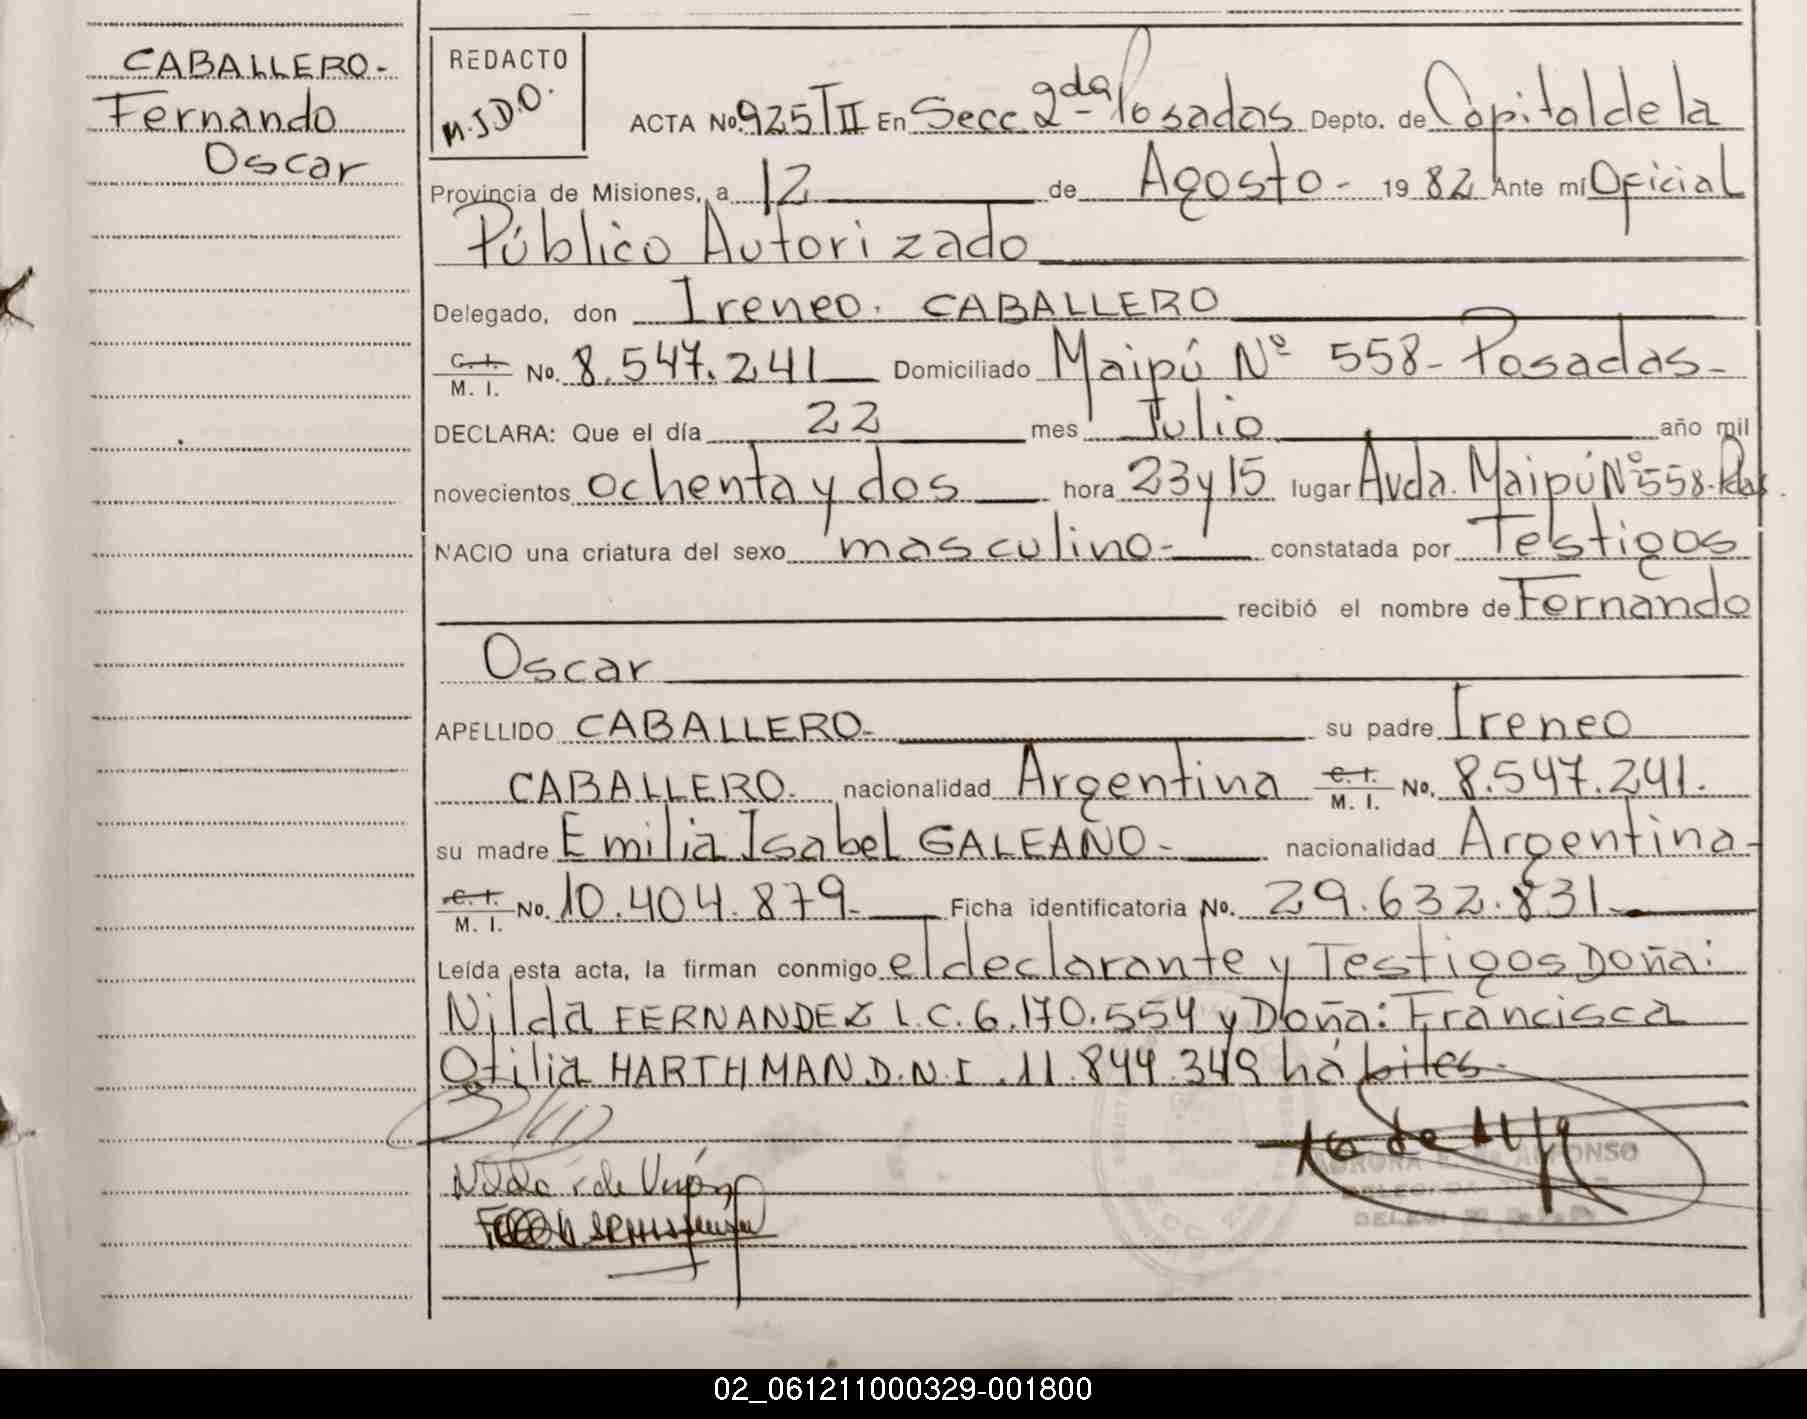 CABALLERO-
Fernando
Oscar
REDACTO
M.J.D.O.
ACTA No. 925 T II En Secc. 2da Posadas Depto. de Capital de la
Provincia de Misiones, a 12 de Agosto - 19 82 Ante mí Oficial
Público Autorizado
Delegado, don Ireneo. CABALLERO
C. I. M. I. No. 8.547.241 Domiciliado Maipú Nº 558 - Posadas -
DECLARA: Que el día 22 mes Julio año mil
novecientos ochenta y dos hora 23 y 15 lugar Avda. Maipú Nº 558. Pdas.
NACIO una criatura del sexo masculino - constatada por Testigos
recibió el nombre de Fernando
Oscar
APELLIDO CABALLERO - su padre Ireneo
CABALLERO. nacionalidad Argentina C. I. M. I. No. 8.547.241.
su madre Emilia Isabel GALEANO - nacionalidad Argentina -
C. I. M. I. No. 10.404.879 - Ficha identificatoria No. 29.632.831.
Leída esta acta, la firman conmigo el declarante y Testigos Doña:
Nilda FERNANDEZ L.C. 6.170.554 y Doña: Francisca
Otilia HARTHMAN D.N.I. 11.844.349 hábiles.-
Nilda de
ALFONSO
02_061211000329-001800